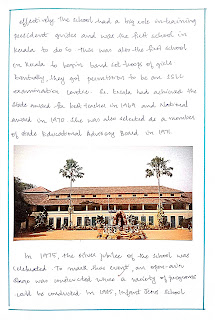 effectively. The school had a big role in training
president guides and was the first school in
Kerala to do so. This was also the first school
in Kerala to begin band set troop of girls
they got permission to be an SSLC
examination centre. Sr. had achieved the
state award for best teacher in 1969 and National
award in 1970. She was also selected as a member
of State Educational Advisory Board in 1971.
In 1975, the silver jubilee of the school was
celebrated. To mark this event, an open-air
stage was constructed where a variety of programs
could be conducted. In 1985, Infant Jesus School